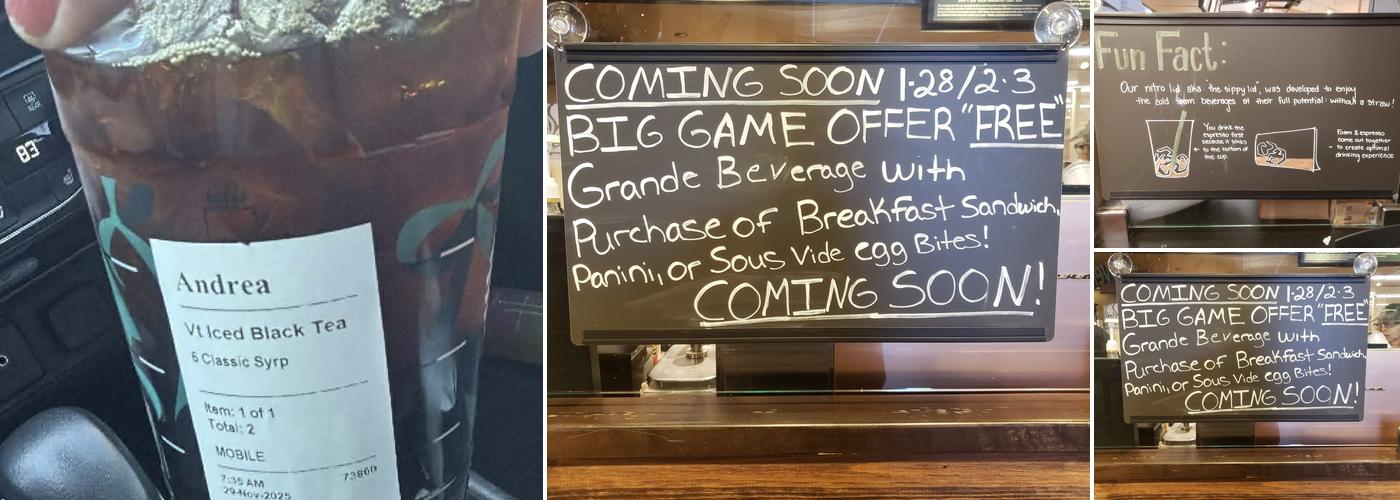 83
Andrea
Vt Iced Black Tea
6 Classic Syrp
Item: 1 of 1
Total: 2
MOBILE
7:35 AM
73860
29-Nov-2025
COMING SOON 1·28/2·3
BIG GAME OFFER "FREE"
Grande Beverage with
Purchase of Breakfast Sandwich,
Panini, or Sous Vide egg Bites!
COMING SOON!
Fun Fact:
Our nitro lid, aka the sippy lid, was developed to enjoy
the cold foam beverages at their full potential: without a straw!
You drink the
espresso first
because it sinks
to the bottom of
the cup.
Foam & espresso
come out together
to create optimal
drinking experience.
COMING SOON 1·28/2·3
BIG GAME OFFER "FREE"
Grande Beverage with
Purchase of Breakfast Sandwich,
Panini, or Sous Vide egg Bites!
COMING SOON!